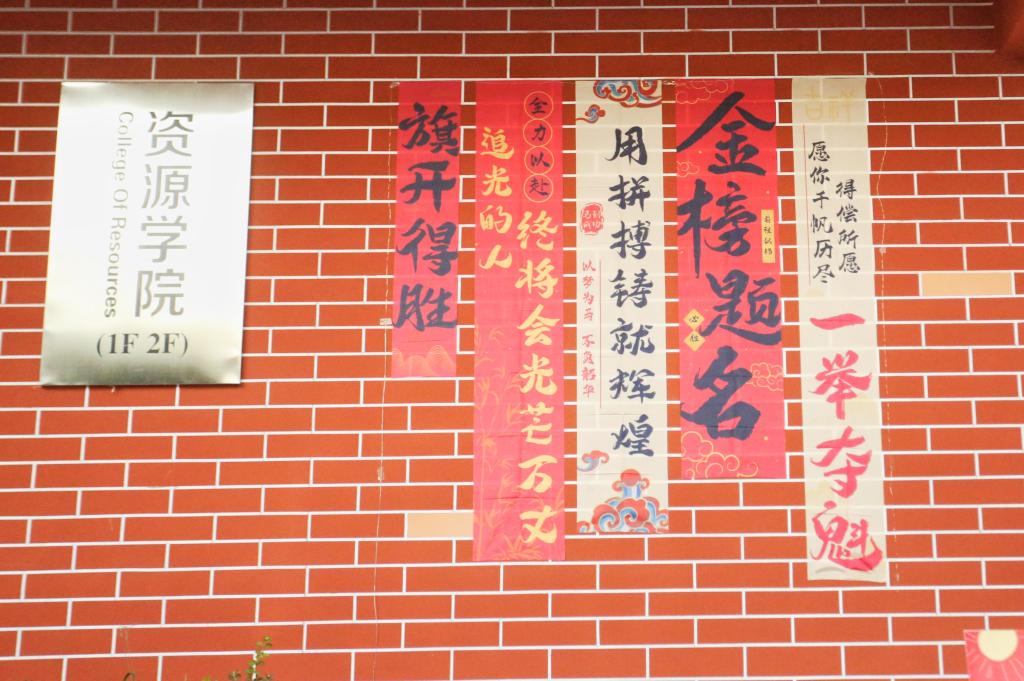 资源学院
College Of Resources
(1F 2F)
旗开得胜
全力以赴
追光的人
终将会光芒万丈
用拼搏铸就辉煌
以梦为马 不负韶华
金榜题名
必胜
吉祥
得偿所愿
愿你千帆历尽
一举夺魁